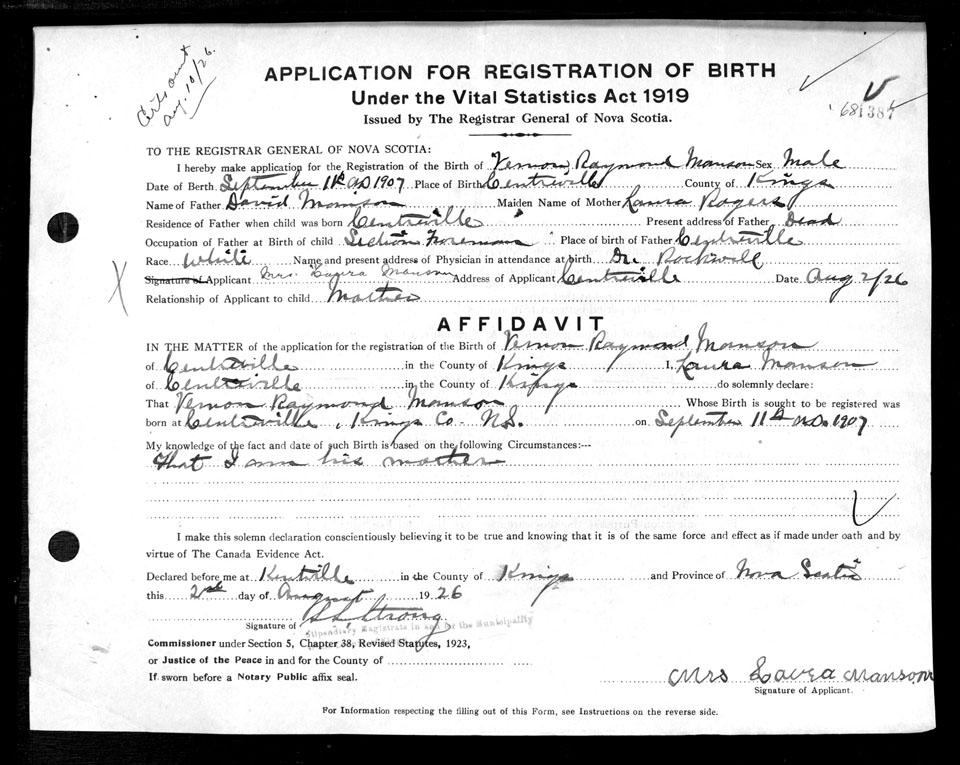 Certs out
Aug. 10/26.
APPLICATION FOR REGISTRATION OF BIRTH
Under the Vital Statistics Act 1919
Issued by The Registrar General of Nova Scotia.
TO THE REGISTRAR GENERAL OF NOVA SCOTIA:
I hereby make application for the Registration of the Birth of Vernon Raymond Manson Sex Male
Date of Berth September 11th AD 1907 Place of Birth Centreville County of Kings
Name of Father David Manson Maiden Name of Mother Laura Rogers
Residence of Father when child was born Centreville Present address of Father Dead
Occupation of Father at Birth of child Section Foreman Place of birth of Father Centreville
Race White Name and present address of Physician in attendance at birth Dr Rockwell
Signature of Applicant Mrs. Laura Manson Address of Applicant Centreville Date Aug 2/26
Relationship of Applicant to child Mother
AFFIDAVIT
IN THE MATTER of the application for the registration of the Birth of Vernon Raymond Manson
of Centreville in the County of Kings I, Laura Manson
of Centreville in the County of Kings do solemnly declare:
That Vernon Raymond Manson Whose Birth is sought to be registered was
born at Centreville, Kings Co. N.S. on September 11th AD. 1907
My knowledge of the fact and date of such Birth is based on the following Circumstances:---
That I am his mother
I make this solemn declaration conscientiously believing it to be true and knowing that it is of the same force and effect as if made under oath and by
virtue of The Canada Evidence Act.
Declared before me at Kentville in the County of Kings and Province of Nova Scotia
this 2nd day of August 1926
Signature of Strong
Stipendiary Magistrate in and for the Municipality
Commissioner under Section 5, Chapter 38, Revised Statutes, 1923,
or Justice of the Peace in and for the County of
If sworn before a Notary Public affix seal.
Mrs Laura Manson
Signature of Applicant.
For Information respecting the filling out of this Form, see Instructions on the reverse side.